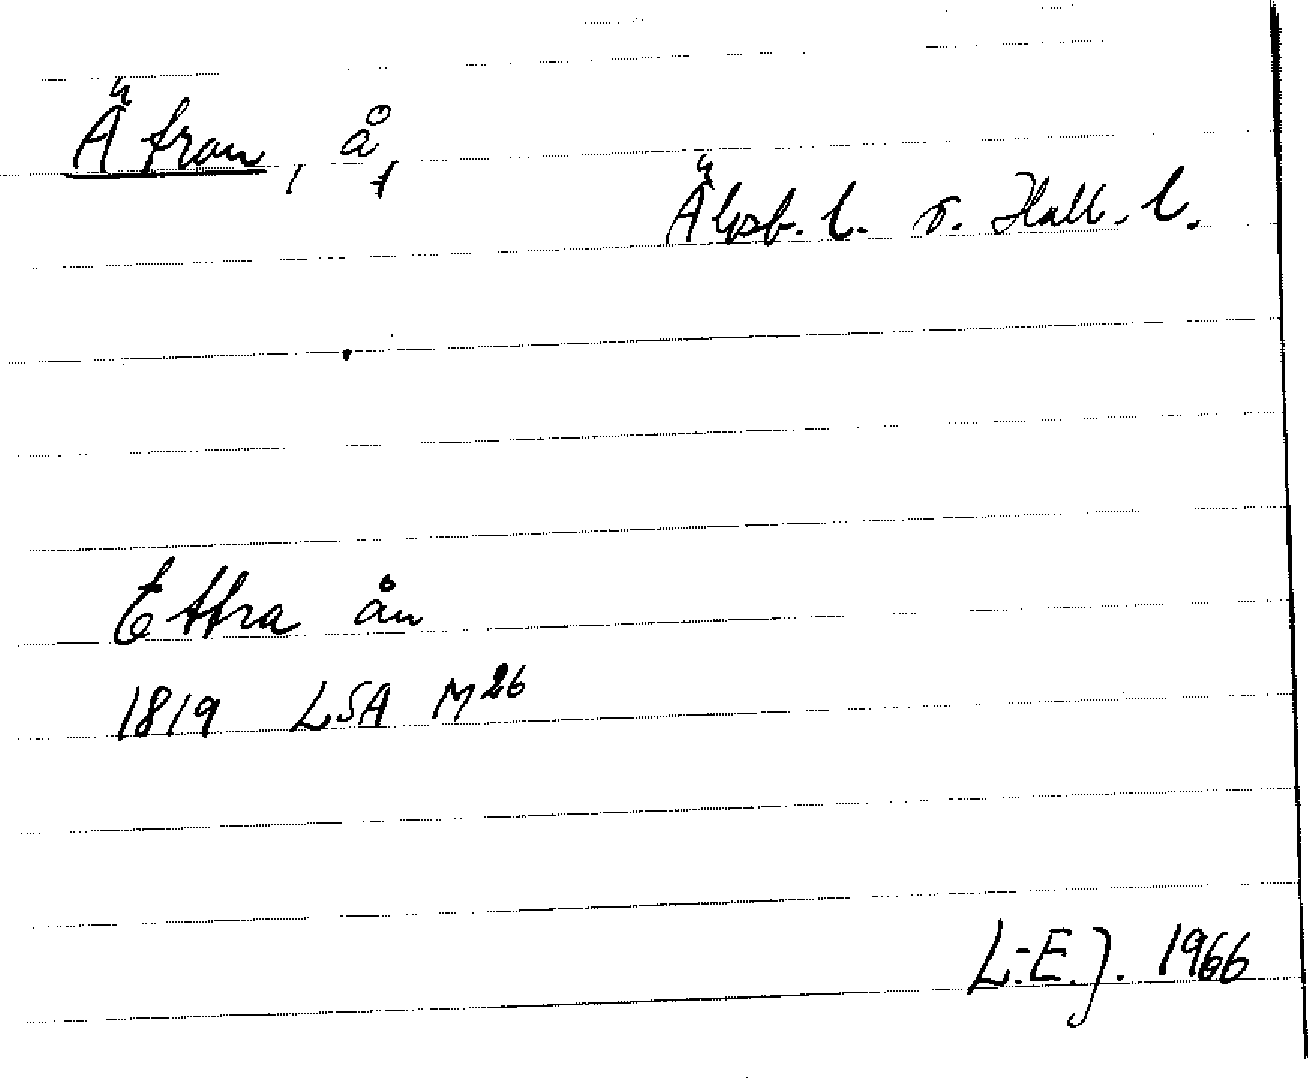 Ätran, å,
Älvsb. l. o. Hall. l.
Ettra ån
1819 LSA M26
L.-E.J. 1966